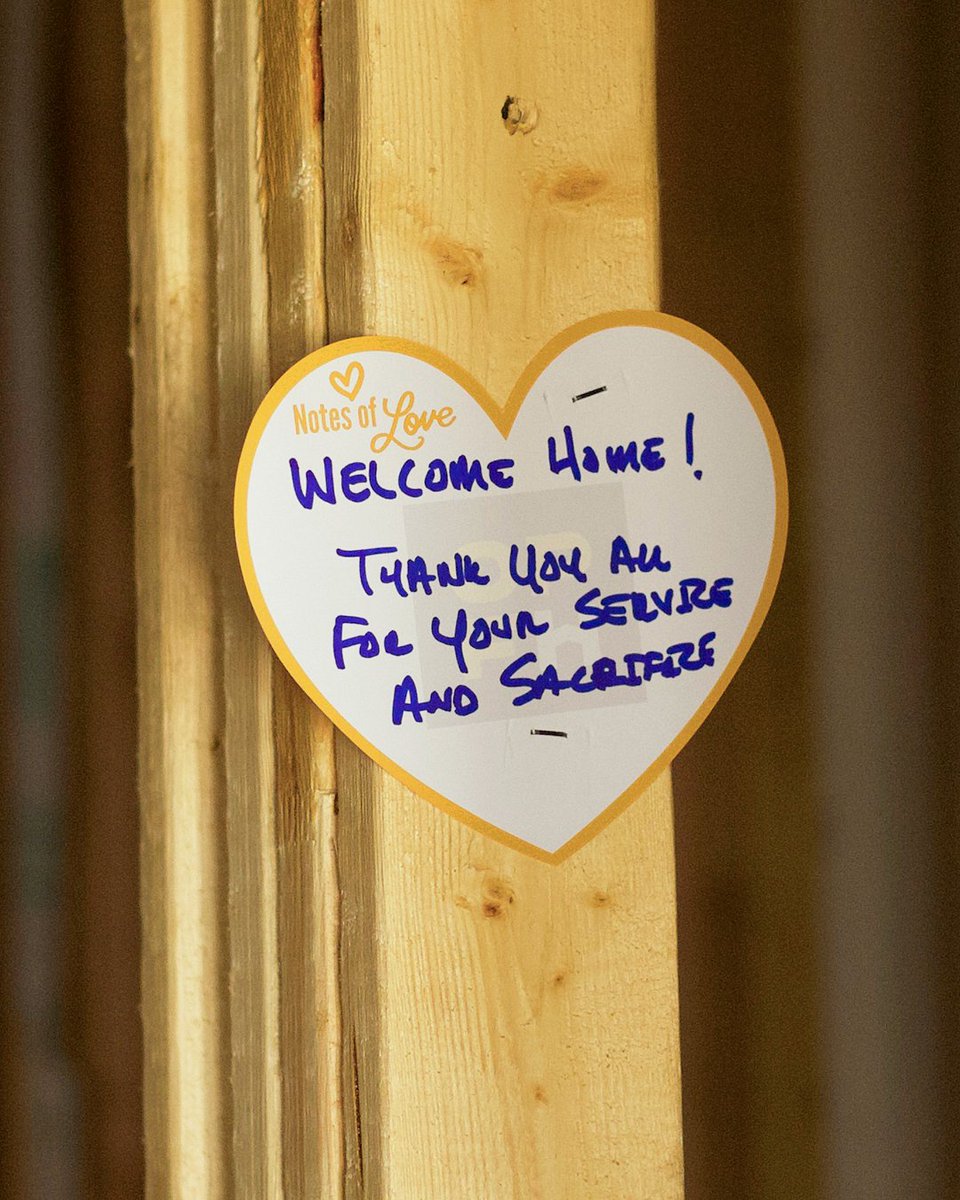 Notes of Love
WELCOME HOME!
THANK YOU ALL
FOR YOUR SERVICE
AND SACRIFICE